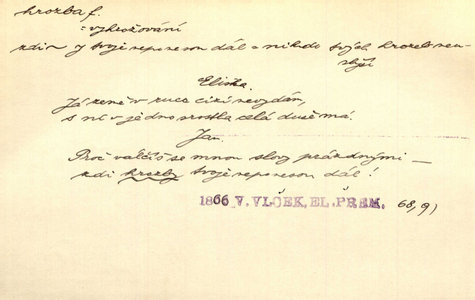 hrozba f.
= vyhrožování
zdi y tvoje neponesou dál = nikdo tvých hrozeb neu-
slyší
Eliška.
Já země v ruce cizí nevydám,
s ní v jedno srostla celá duše má.
Jan.
Proč válčíš se mnou slovy prázdnými —
zdi hrozby tvoje neponesou dál!
1866 V. VLČEK, EL. PŘEM. 68, 9)